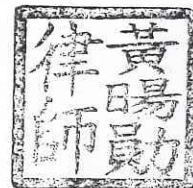 黃暘勛
律師